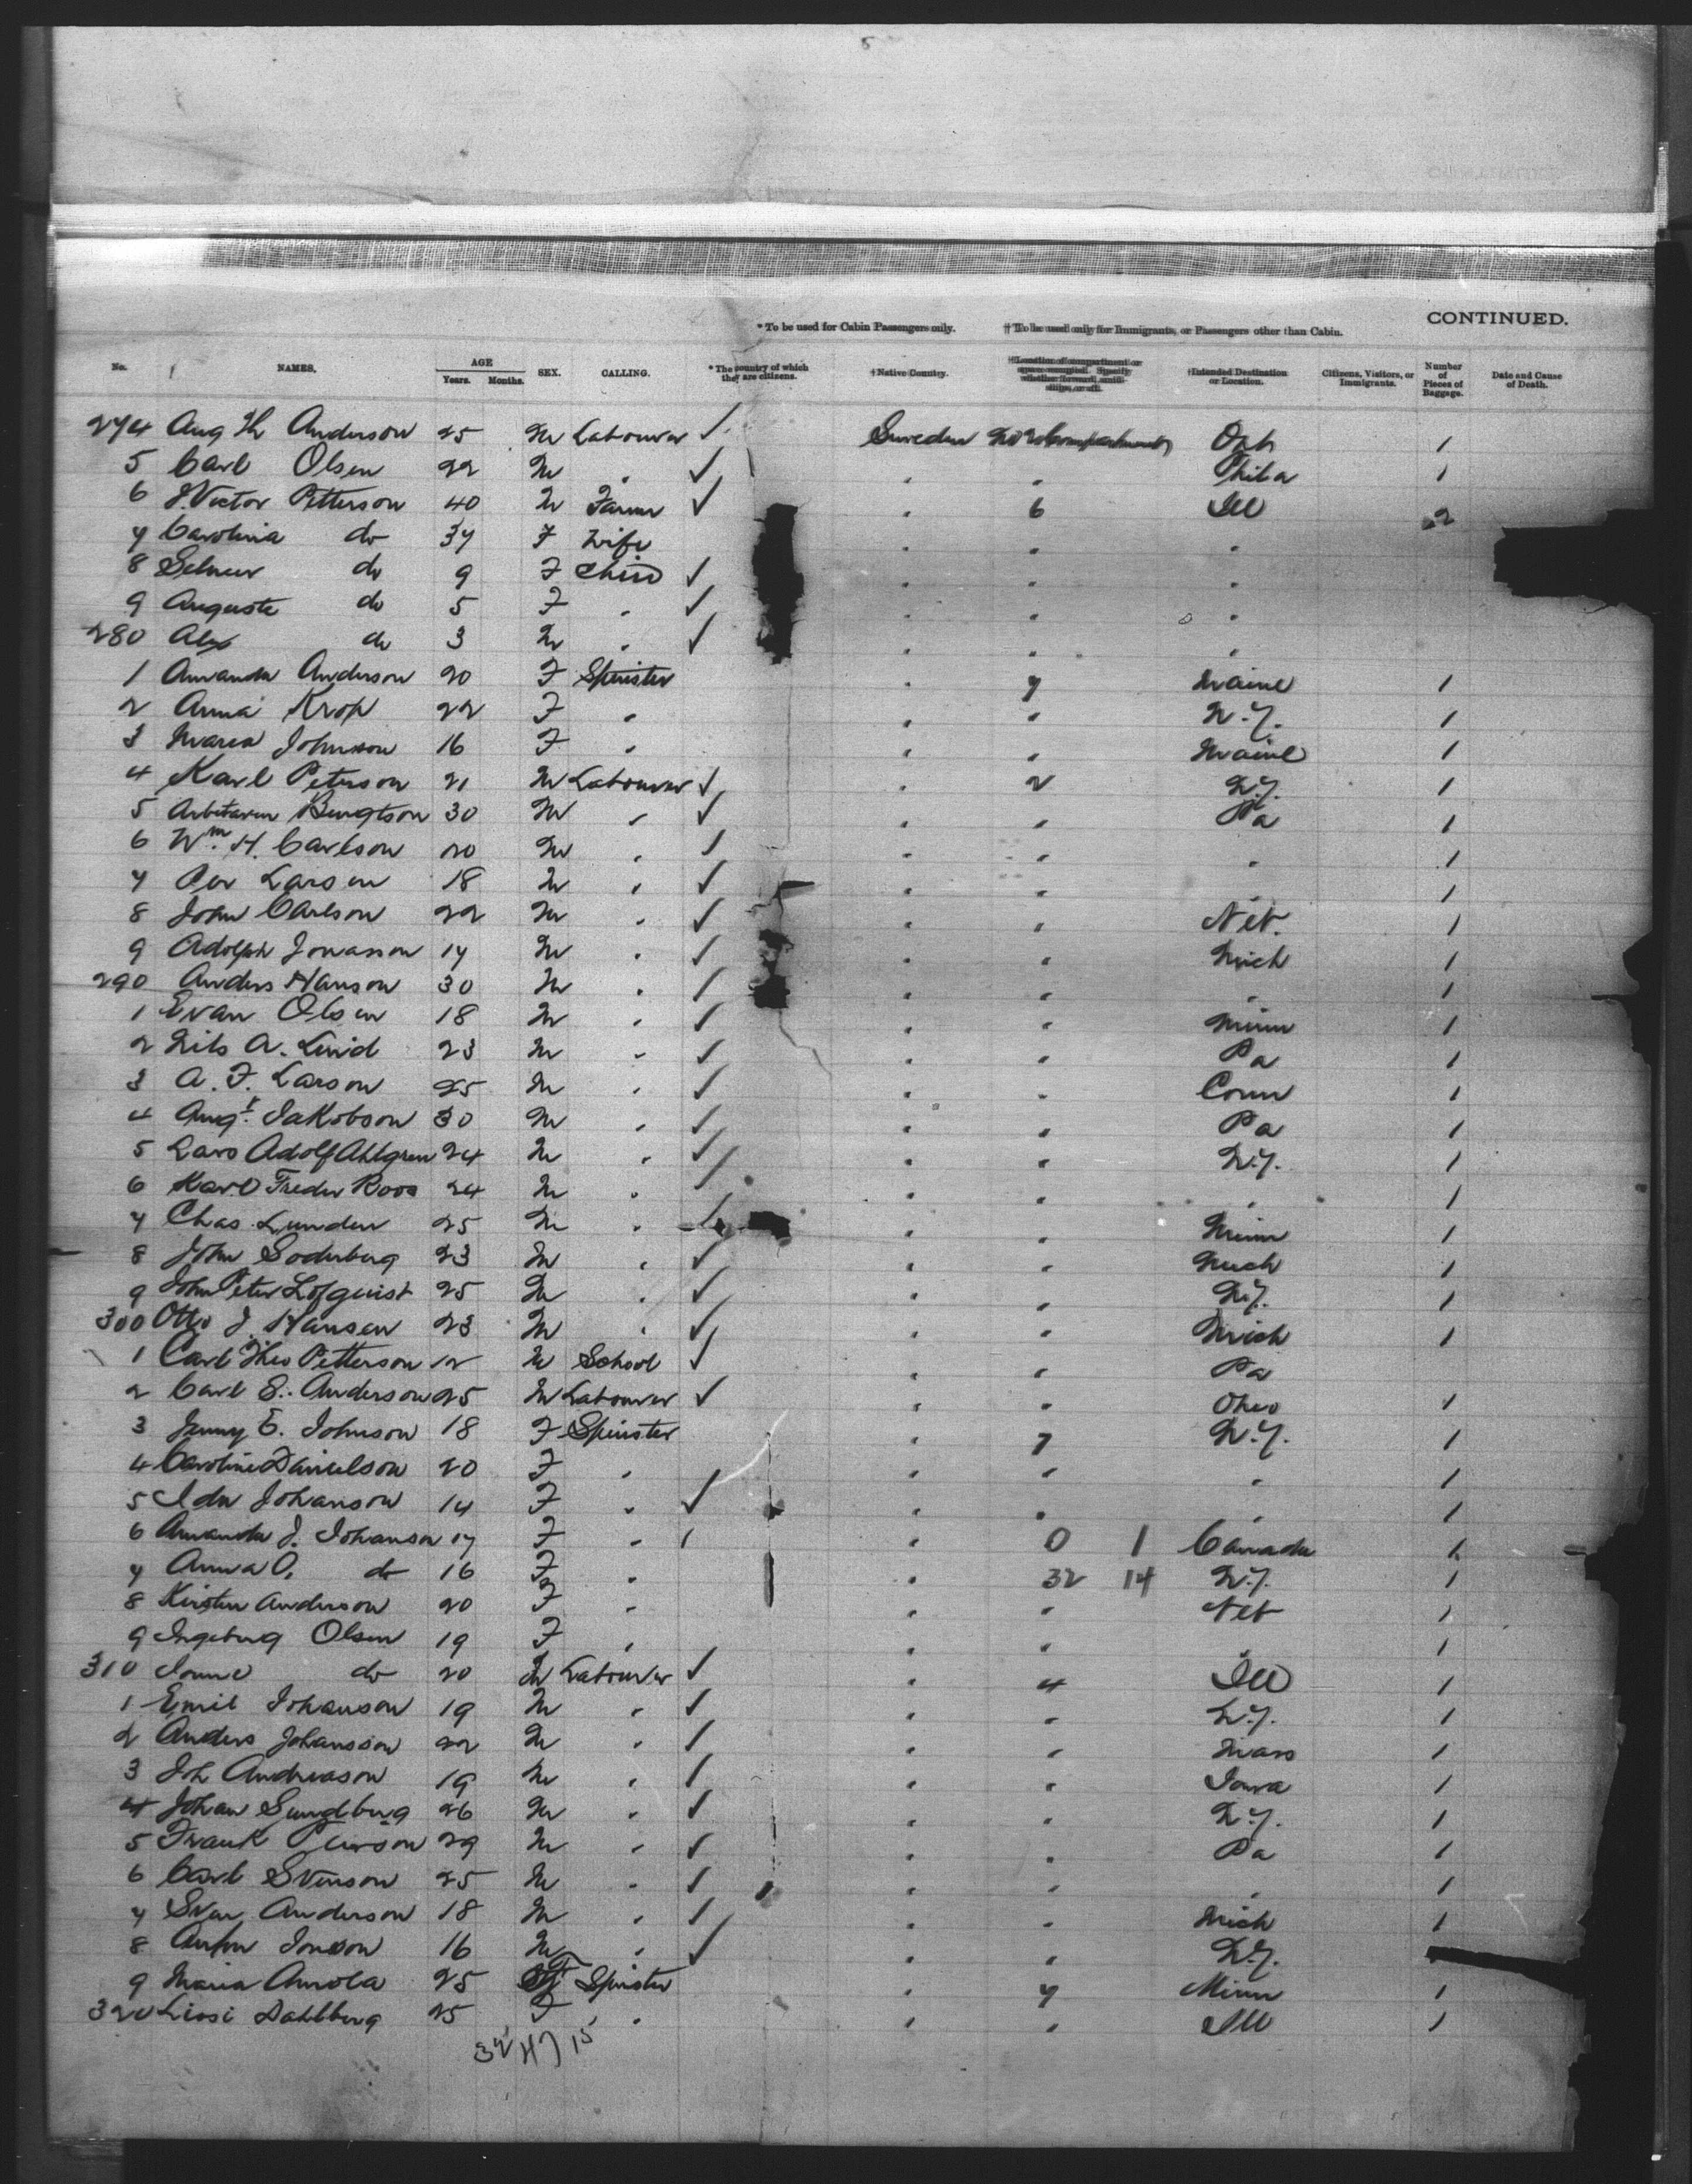 CONTINUED.
* To be used for Cabin Passengers only. † To be used only for Immigrants, or Passengers other than Cabin.
No. NAMES. AGE Years. Months. SEX. CALLING. * The country of which they are citizens. † Native Country. † Location of compartment or space occupied. Specify whether forward, amidships, or aft. † Intended Destination or Location. Citizens, Visitors, or Immigrants. Number of Pieces of Baggage. Date and Cause of Death.
274 Aug Th Anderson 25 M Labourer ✓ Sweden No 2 Compartment 1
5 Carl Olsen 22 M " ✓ " " Phila 1
6 J. Victor Petterson 40 M Farmer ✓ " 6 Ill 2
7 Carolina do 37 F Wife " " "
8 do 9 F Child ✓ " " "
9 Auguste do 5 F " ✓ " " "
280 Alex do 3 M " ✓ " " "
1 Amanda Anderson 20 F Spinster " 7 Maine 1
2 Anna Krop 22 F " " " N.Y. 1
3 Maria Johnson 16 F " " " Maine 1
4 Karl Peterson 21 M Labourer ✓ " 2 N.Y. 1
5 Bengtson 30 M " ✓ " " Pa 1
6 Wm. H. Carlson 20 M " ✓ " " " 1
7 Per Larsen 18 M " ✓ " " " 1
8 John Carlson 22 M " ✓ " " Neb. 1
9 Adolph Jonasson 17 M " ✓ " " Mich 1
290 Anders Hanson 30 M " ✓ " " " 1
1 Evan Olsen 18 M " ✓ " " Minn 1
2 Nils A. Lind 23 M " ✓ " " Pa 1
3 A. F. Larson 25 M " ✓ " " Conn 1
4 Augt. Jakobson 30 M " ✓ " " Pa 1
5 Lars Adolf Ahlgren 24 M " ✓ " " N.Y. 1
6 Karl Freder Roos 24 M " ✓ " " " 1
7 Chas. Lunden 25 M " ✓ " " Minn 1
8 John Soderberg 23 M " ✓ " " Mich 1
9 John Peter Lofquist 25 M " ✓ " " N.Y. 1
300 Otto J. Hansen 23 M " ✓ " " Mich 1
1 Carl Theo Petterson 12 M School ✓ " " Pa
2 Carl E. Anderson 25 M Labourer ✓ " " Ohio 1
3 Jenny E. Johnson 18 F Spinster " 7 N.Y. 1
4 Caroline Danielson 20 F " " " " 1
5 Ida Johanson 14 F " ✓ " " " 1
6 Amanda J. Johanson 17 F " 1 " 0 1 Canada 1
7 Anna O. do 16 F " " 32 14 N.Y. 1
8 Kirsten Anderson 20 F " " " Neb 1
9 Ingeborg Olsen 19 F " " " " 1
310 do 20 M Labourer ✓ " 4 Ill 1
1 Emil Johanson 19 M " ✓ " " N.Y. 1
2 Anders Johansson 22 M " ✓ " " Mass 1
3 Joh Andreason 19 M " ✓ " " Iowa 1
4 Johan Sundberg 26 M " ✓ " " N.Y. 1
5 Frank Pearson 29 M " ✓ " " Pa 1
6 Carl Svenson 25 M " ✓ " " " 1
7 Sven Anderson 18 M " ✓ " " Mich 1
8 Anton Jonson 16 M " ✓ " " N.Y.
9 Maria 25 F Spinster " 7 Minn 1
320 Dahlberg 25 F " " " Ill 1
32 47 15